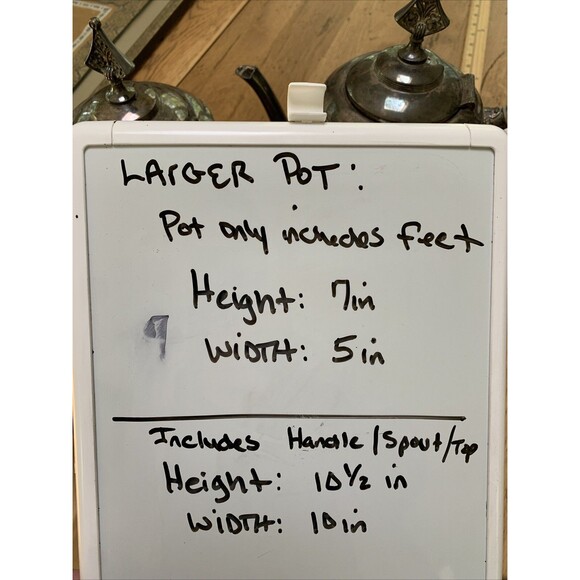 LARGER POT:
Pot only includes feet
Height: 7in
WIDTH: 5in
Includes Handle/Spout/Top
Height: 10 1/2 in
WIDTH: 10in